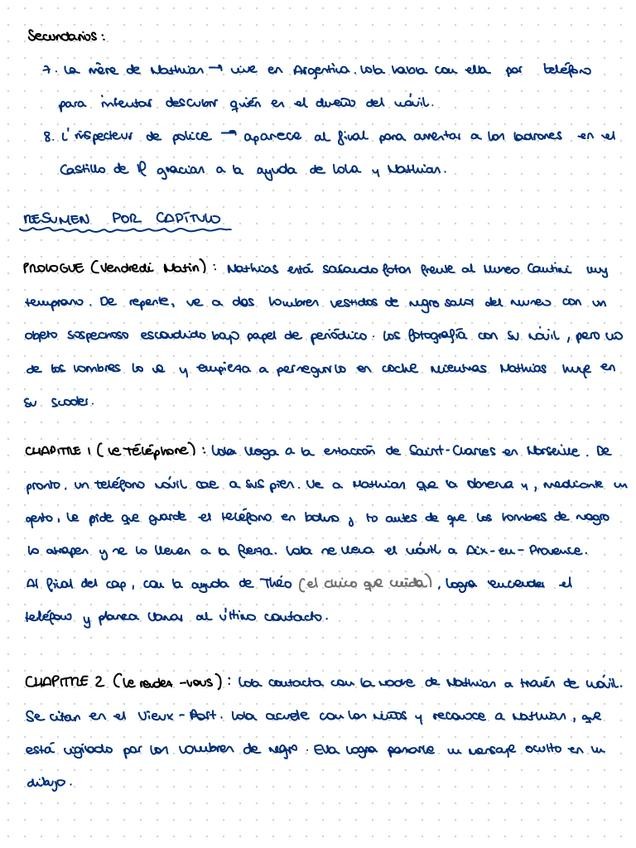 Secundarios:
7. La mère de Mathias → vive en Argentina. Lola habla con ella por teléfono
para intentar descubrir quién es el dueño del móvil.
8. L'inspecteur de police → aparece al final para arrestar a los ladrones en el
Castillo de R gracias a la ayuda de Lola y Mathias.
RESUMEN POR CAPÍTULO
PROLOGUE (Vendredi Matin): Mathias está sacando fotos frente al Museo Cantini muy
temprano. De repente, ve a dos hombres vestidos de negro salir del museo con un
objeto sospechoso escondido bajo papel de periódico. Los fotografía con su móvil, pero uno
de los hombres lo ve y empieza a perseguirlo en coche mientras Mathias huye en
su scooter.
CHAPITRE 1 (Le téléphone): Lola llega a la estación de Saint-Charles en Marseille. De
pronto, un teléfono móvil cae a sus pies. Ve a Mathias que la observa y, mediante un
gesto, le pide que guarde el teléfono en bolso y antes de que los hombres de negro
lo atrapen y se lo lleven a la fuerza. Lola se lleva el móvil a Aix-en-Provence.
Al final del cap, con la ayuda de Théo (el chico que cuida), logra encender el
teléfono y planea llamar al último contacto.
CHAPITRE 2 (Le rendez-vous): Lola contacta con la madre de Mathias a través de móvil.
Se citan en el Vieux-Port. Lola acude con los niños y reconoce a Mathias, que
está vigilado por los hombres de negro. Ella logra pasarle un mensaje oculto en un
dibujo.